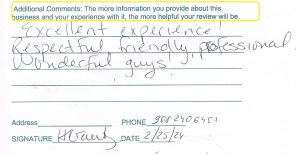 Additional Comments: The more information you provide about this
business and your experience with it, the more helpful your review will be.
Excellent experience!
Respectful, friendly, professional.
Wonderful guys!
Address PHONE 908 240 6451
SIGNATURE DATE 2/25/24